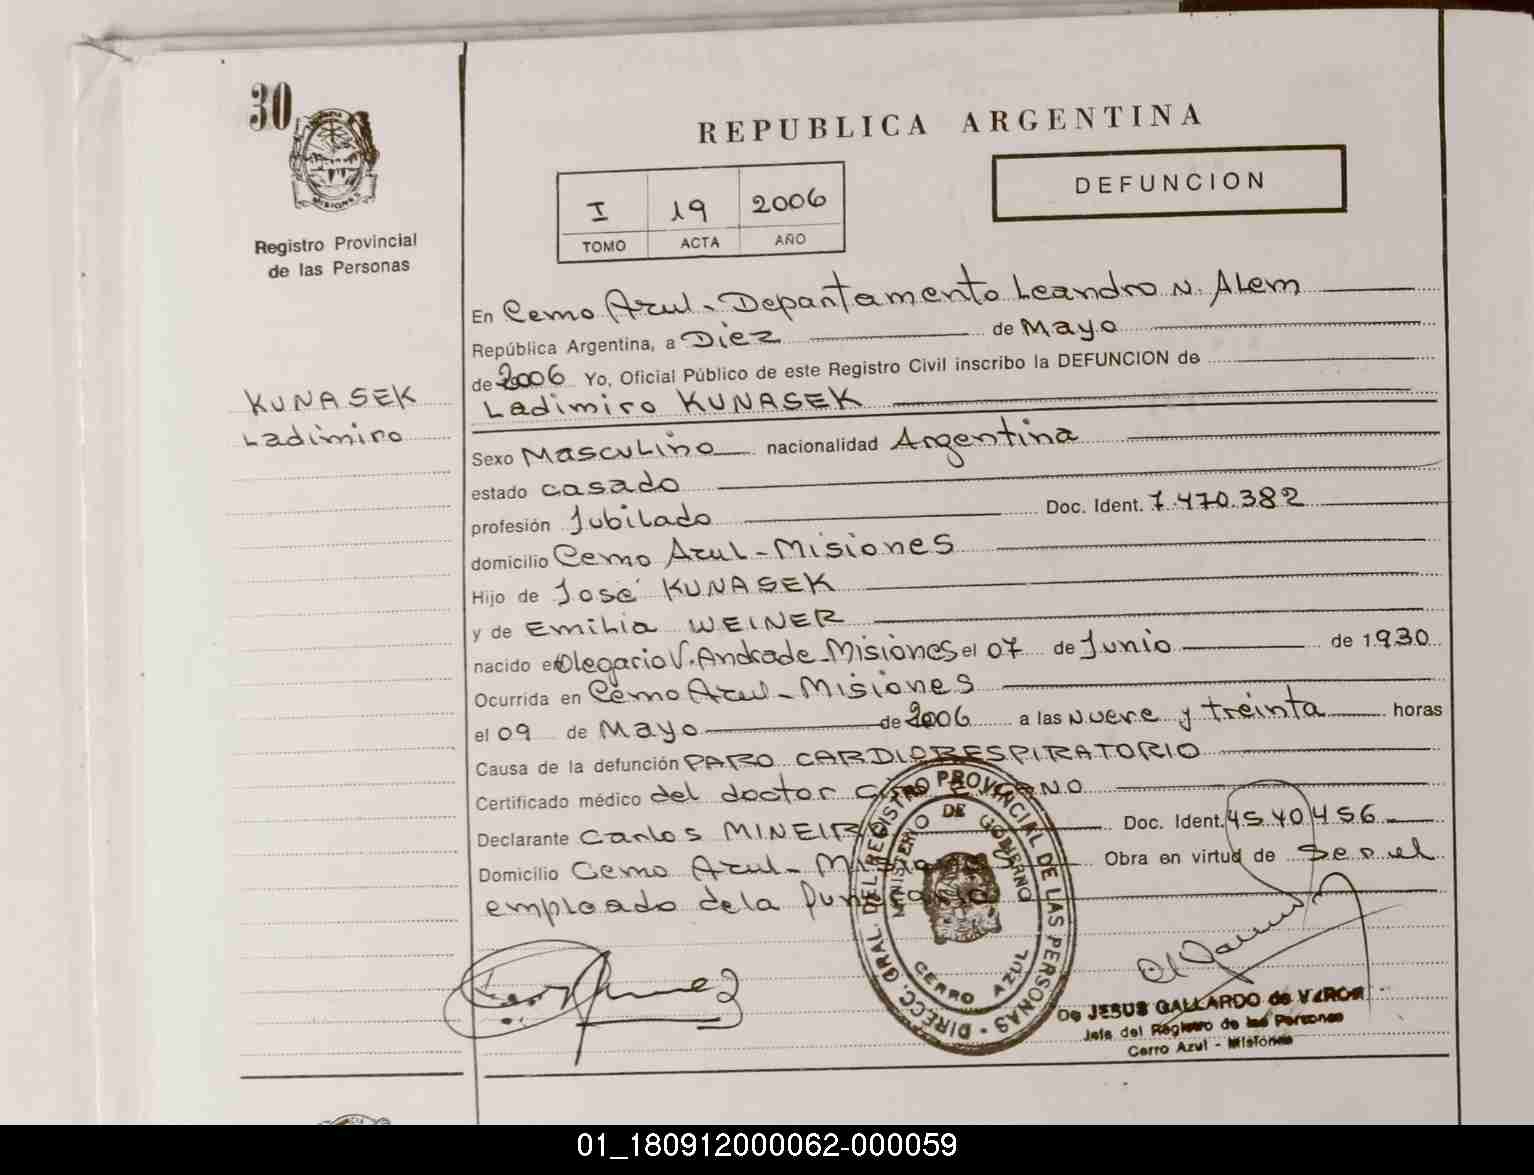 30
MISIONES
Registro Provincial
de las Personas
KUNASEK
Ladimiro
REPUBLICA ARGENTINA
I 19 2006
TOMO ACTA AÑO
DEFUNCION
En Cerro Azul - Departamento Leandro N. Alem
República Argentina, a Diez de Mayo
de 2006 Yo, Oficial Público de este Registro Civil inscribo la DEFUNCION de
Ladimiro KUNASEK
Sexo Masculino nacionalidad Argentina
estado casado
profesión Jubilado Doc. Ident. 7.470.382
domicilio Cerro Azul - Misiones
Hijo de José KUNASEK
y de Emilia WEINER
nacido en Olegario V. Andrade - Misiones el 07 de Junio de 1930
Ocurrida en Cerro Azul - Misiones
el 09 de Mayo de 2006 a las Nueve y treinta horas
Causa de la defunción PARO CARDIORESPIRATORIO
Certificado médico del doctor
Declarante Carlos MINEIRO Doc. Ident.
Domicilio Cerro Azul - Misiones Obra en virtud de Ser el
empleado de la
DIRECC. GRAL. DEL REGISTRO PROVINCIAL DE LAS PERSONAS
MINISTERIO DE GOBIERNO
CERRO AZUL
De JESUS GALLARDO de
Jefe del Registro de las Personas
Cerro Azul - Misiones
01_180912000062-000059